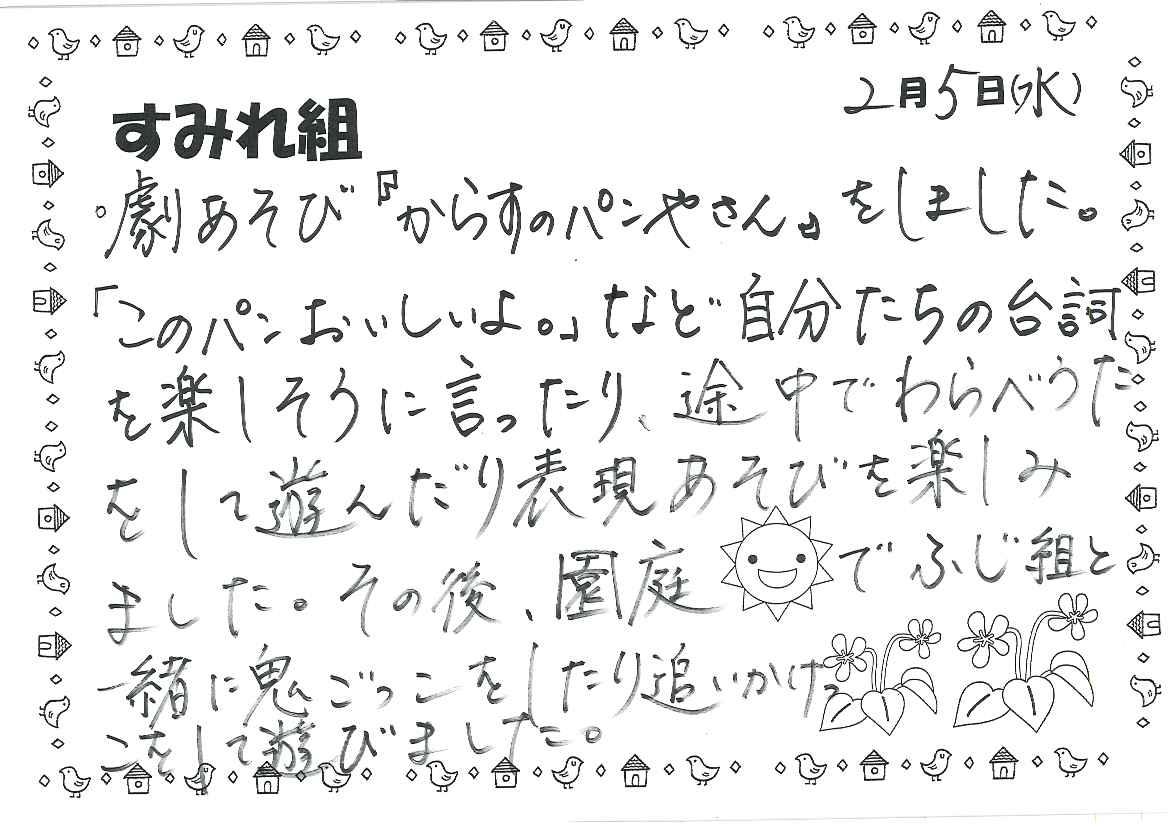 2月5日(水)
すみれ組
。劇あそび『からすのパンやさん』をしました。
「このパンおいしいよ。」など自分たちの台詞
を楽しそうに言ったり、途中でわらべうた
をして遊んだり表現あそびを楽しみ
ました。その後、園庭でふじ組と
一緒に鬼ごっこをしたり追いかけっ
こをして遊びました。